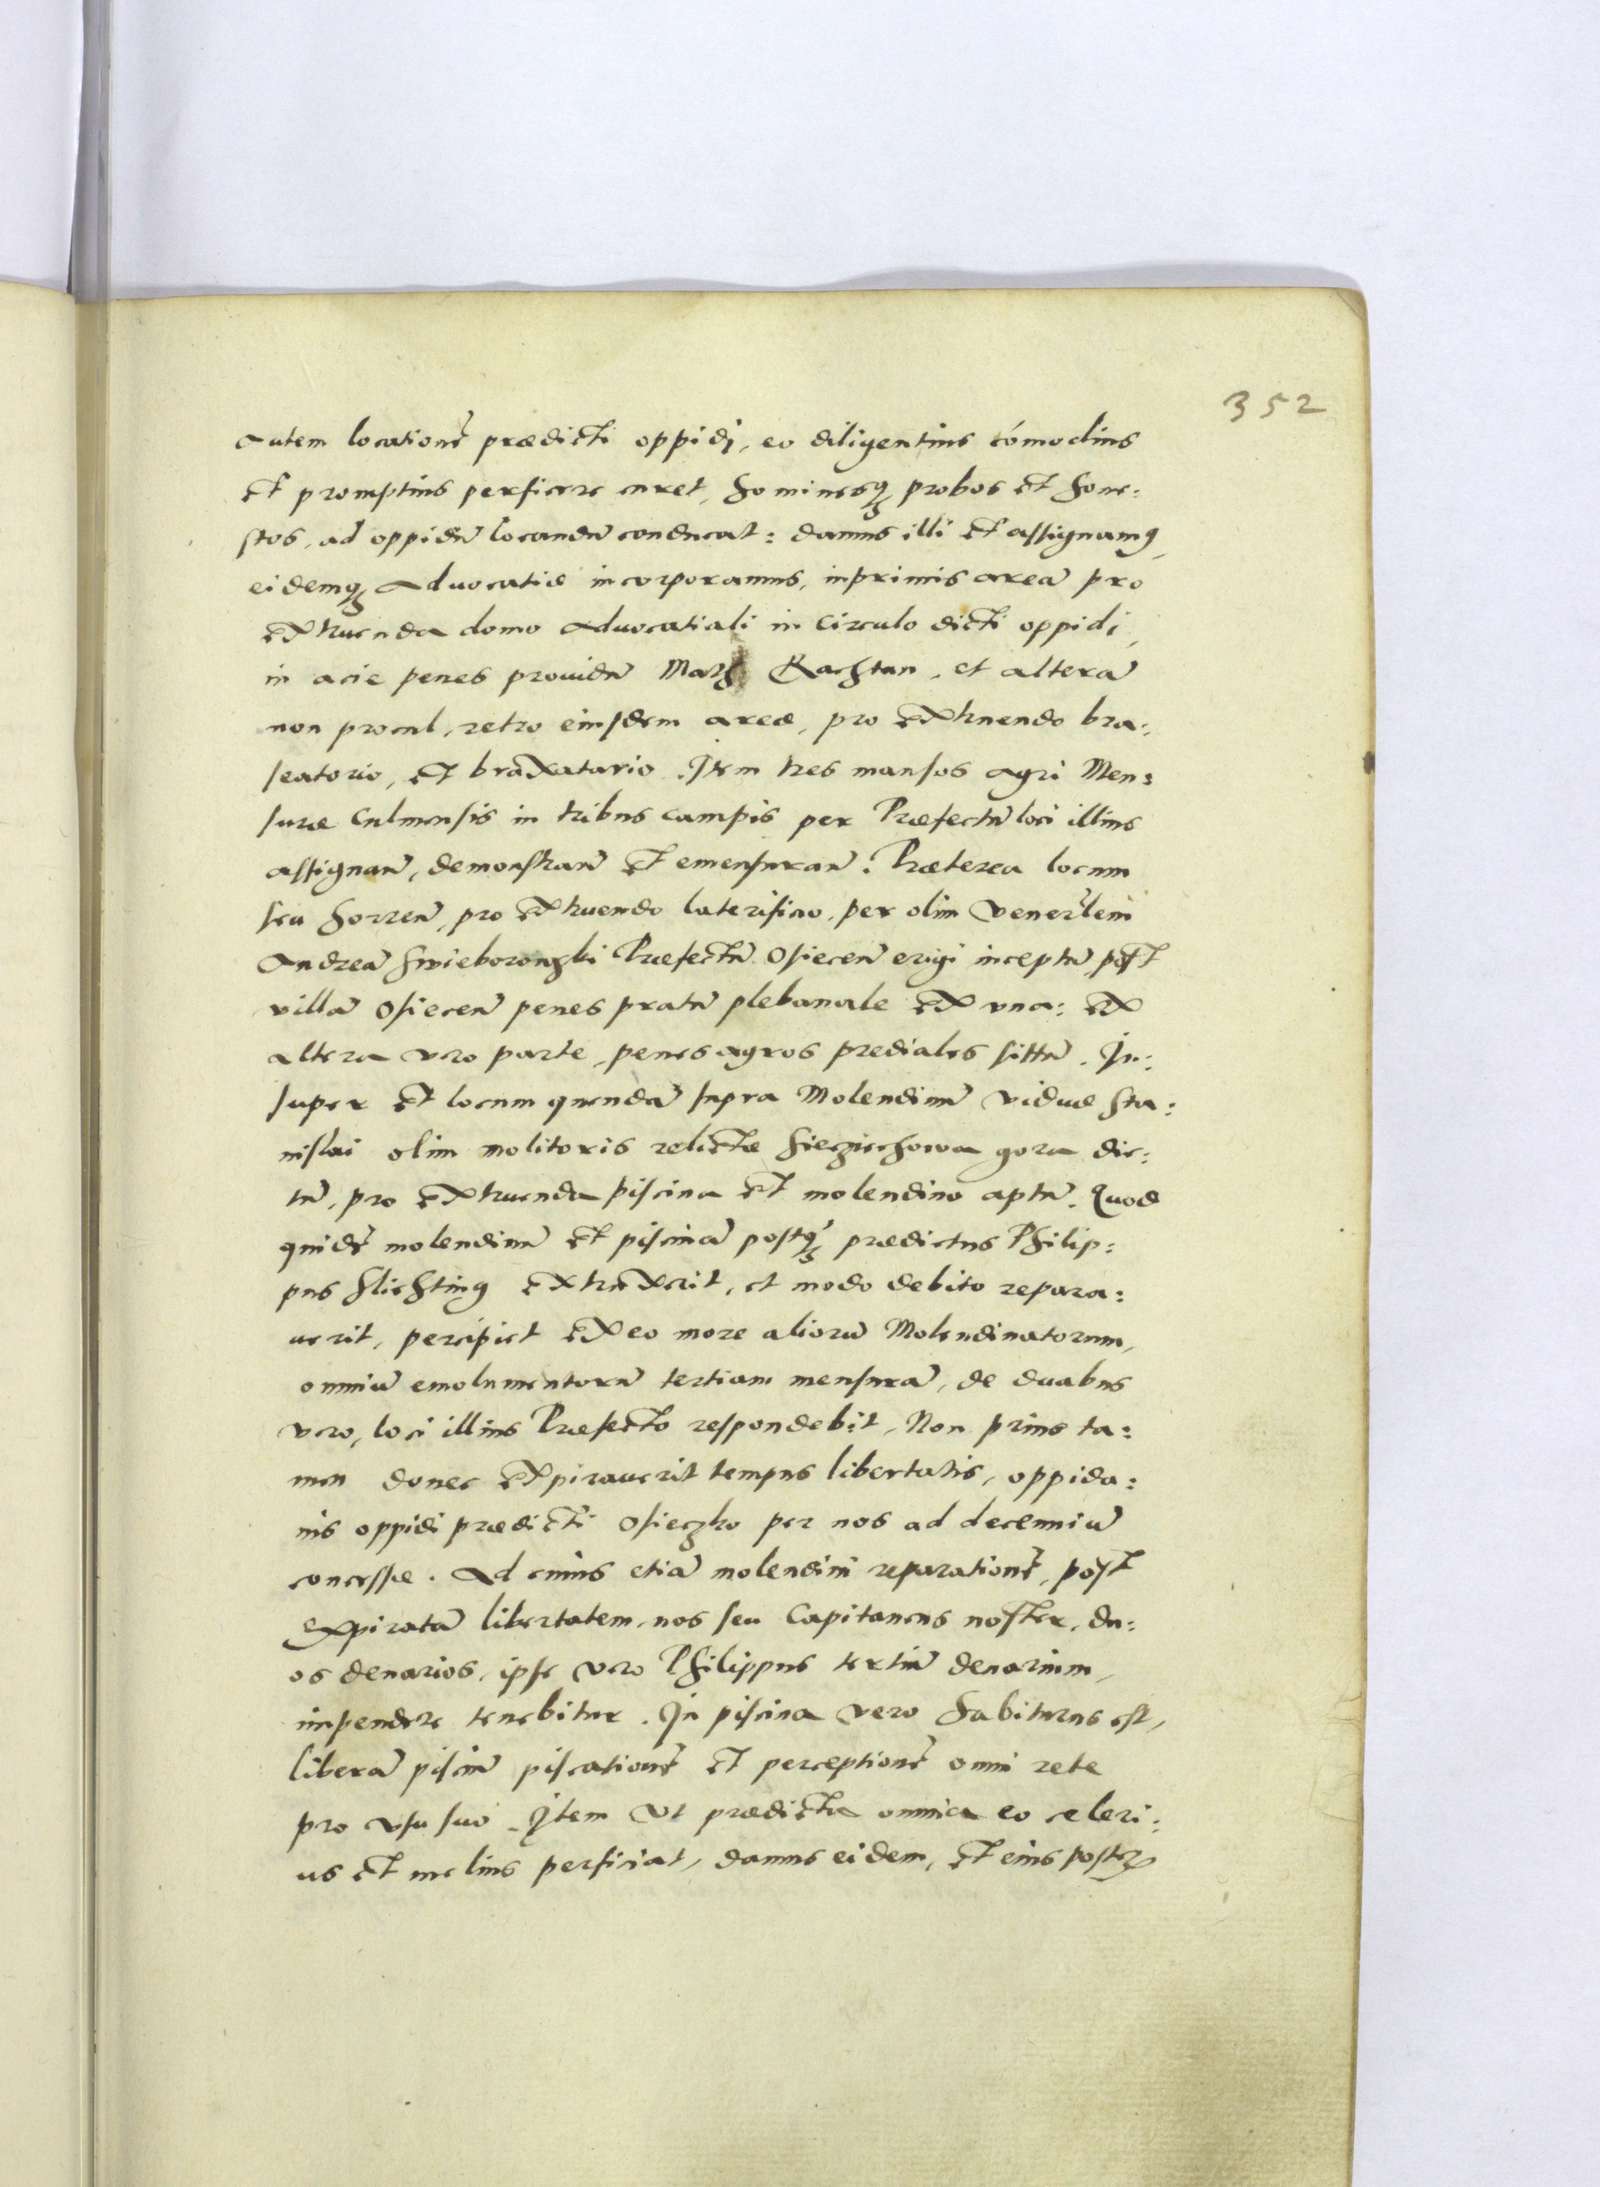 352
autem locationẽ prædicti oppidi, eo diligentius cómodius
et promptius perficere curet, hominesq₃ probos et hone:
stos, ad oppidũ locandũ conducat: damus illi et assignamꝰ,
eidemq₃ aduocatiæ incorporamus, inprimis areã pro
extruenda domo aduocatiali in circulo dicti oppidi,
in acie penes prouidũ Math Rachtan, et alterã
non procul, retro eiusdem areæ, pro extruendo bra:
seatorio, et braxatorio. Item tres mansos agri Men:
suræ Culmensis in tribus campis per Præfectũ loci illius
assignan̄, demonstran̄ et emensuran̄. Præterea locum
seu horreũ, pro extruendo laterificio, per olim Venerłem
Andreã Swieboronzki Præfectũ Osiecen̄ erigi inceptũ post
villã Osiecen̄ penes pratũ plebanale ex vna: ex
altera vero parte, penes agros prediales sittũ. In:
super et locum quendã supra Molendinũ viduæ Sta:
nislai olim molitoris relictæ Sieczichowa gora dic:
tũ, pro extruenda piscina et molendino aptũ. Quod
quidẽ molendinũ et piscinã postq₃ prædictus Philip:
pus Slichting extruxerit, et modo debito repara:
uerit, percipiet ex eo more aliorũ Molendinatorum,
omniũ emolumentorũ tertiam mensurã, de duabus
vero, loci illius Præfecto respondebit, Non prius ta:
men donec expirauerit tempus libertatis, oppida:
nis oppidi prædicti Osieczko per nos ad decenniũ
concessæ. Ad cuius etiã molendini reparationẽ, post
expiratã libertatem, nos seu Capitaneus noster, du:
os denarios, ipse vero Philippus tertiũ denarium,
impendere tenebitur. In piscina vero habiturus est,
liberã pisciũ piscationẽ et perceptionẽ omni rete
pro vsu suo. Item vt prædicta omnia eo celeri:
us et melius perficiat, damus eidem, et eius